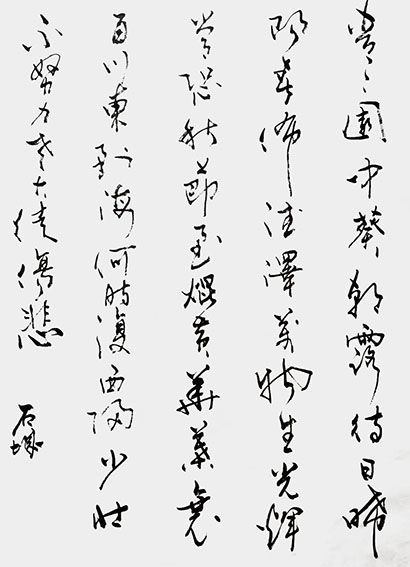 青々園中葵朝露待日晞
陽春佈德澤萬物生光輝
常恐秋節至焜黄華葉衰
百川東到海何時復西歸少壯
不努力老大徒傷悲